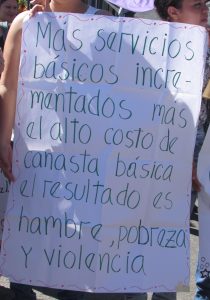 Mas servicios
básicos incre-
mentados mas
el alto costo de
canasta básica
el resultado es
hambre, pobreza
y violencia